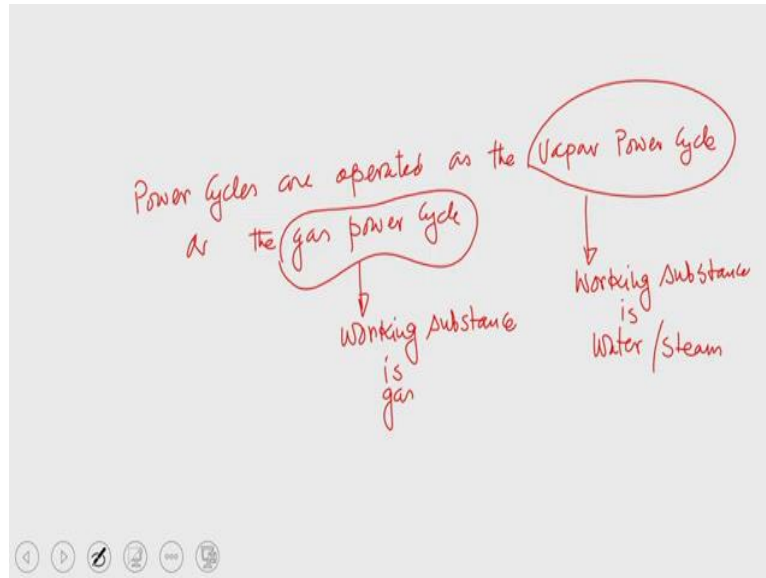 Power Cycles are operated as the Vapour Power Cycle
or the gas power Cycle
Working substance
is
gas
Working substance
is
Water/Steam